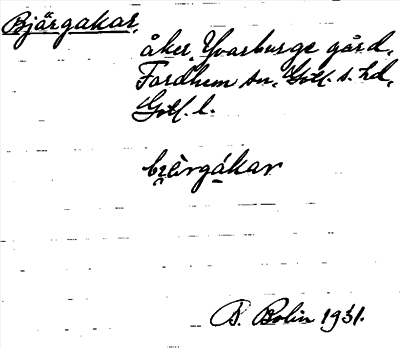 Bjärgakar,
åker, Yvarburge gård,
Fardhem sn, Gotl. s. hd,
Gotl. l.
bi̯èrgákar
B. Bolin 1931.